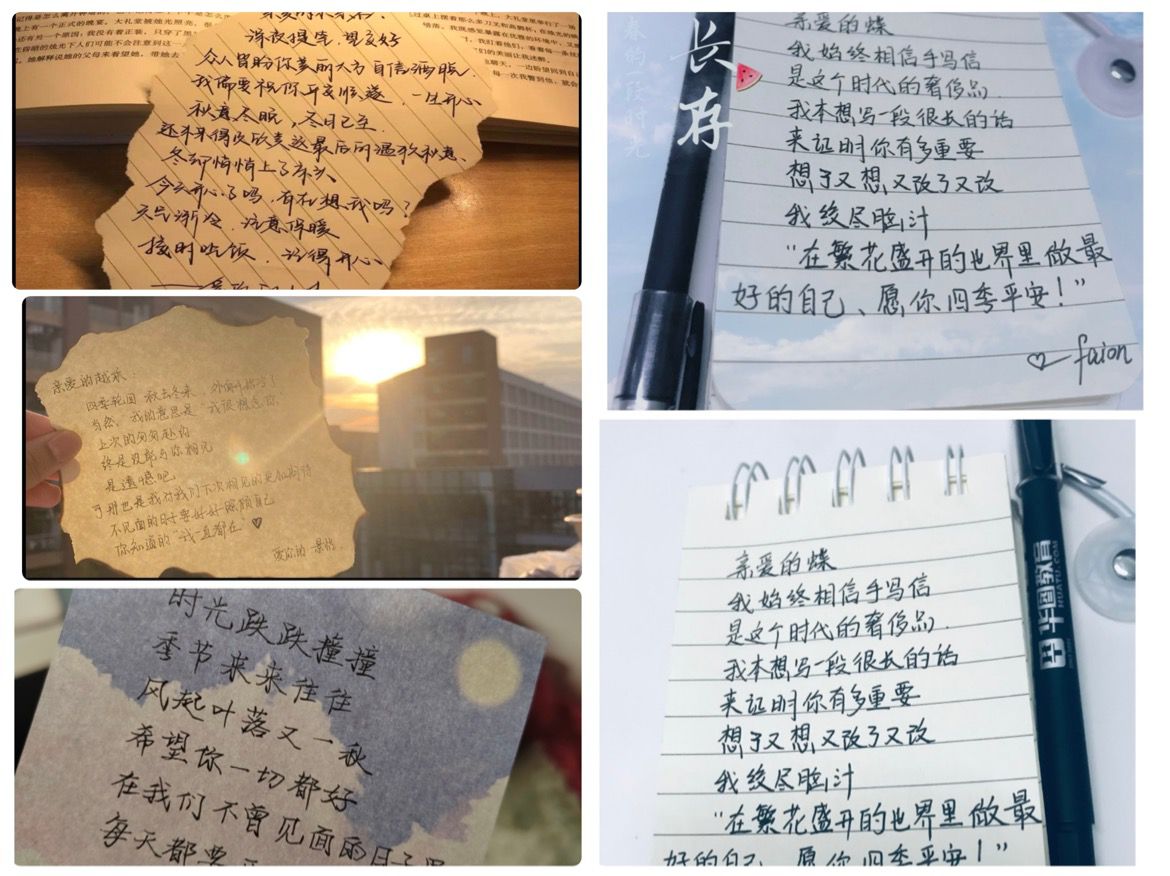 深夜提笔，望安好
众人皆盼你美丽大方自信洒脱
我偏要祝你平安顺遂，一生开心
秋意冬眠，冬日已至
还未来得及欣赏这最后的温热秋意，
冬却悄悄上了枝头
今天开心了吗，有在想我吗？
天气渐冷，注意保暖
按时吃饭，记得开心
亲爱的越秋：
四季轮回 秋去冬来，外面
当然，我的意思是“我很想念你
上次的匆匆赴约
终是没能与你相见
是遗憾吧
可那也是我对我们下次相见的更加期待
不见面的日子要好好照顾自己
你知道的“我一直都在”♡
爱你的
时光跌跌撞撞
季节来来往往
风起叶落又一秋
希望你一切都好
在我们不曾见面的日子里
每天都要
春的一段时光
长存
亲爱的蝶
我始终相信手写信
是这个时代的奢侈品.
我本想写一段很长的话
来证明你有多重要
想了又想又改了又改
我绞尽脑汁
“在繁花盛开的世界里做最
好的自己、愿你四季平安！”
♡ faion
亲爱的蝶
我始终相信手写信
是这个时代的奢侈品.
我本想写一段很长的话
来证明你有多重要
想了又想又改了又改
我绞尽脑汁
“在繁花盛开的世界里做最
好的自己、愿你四季平安！”
华图教育
HUATU.COM